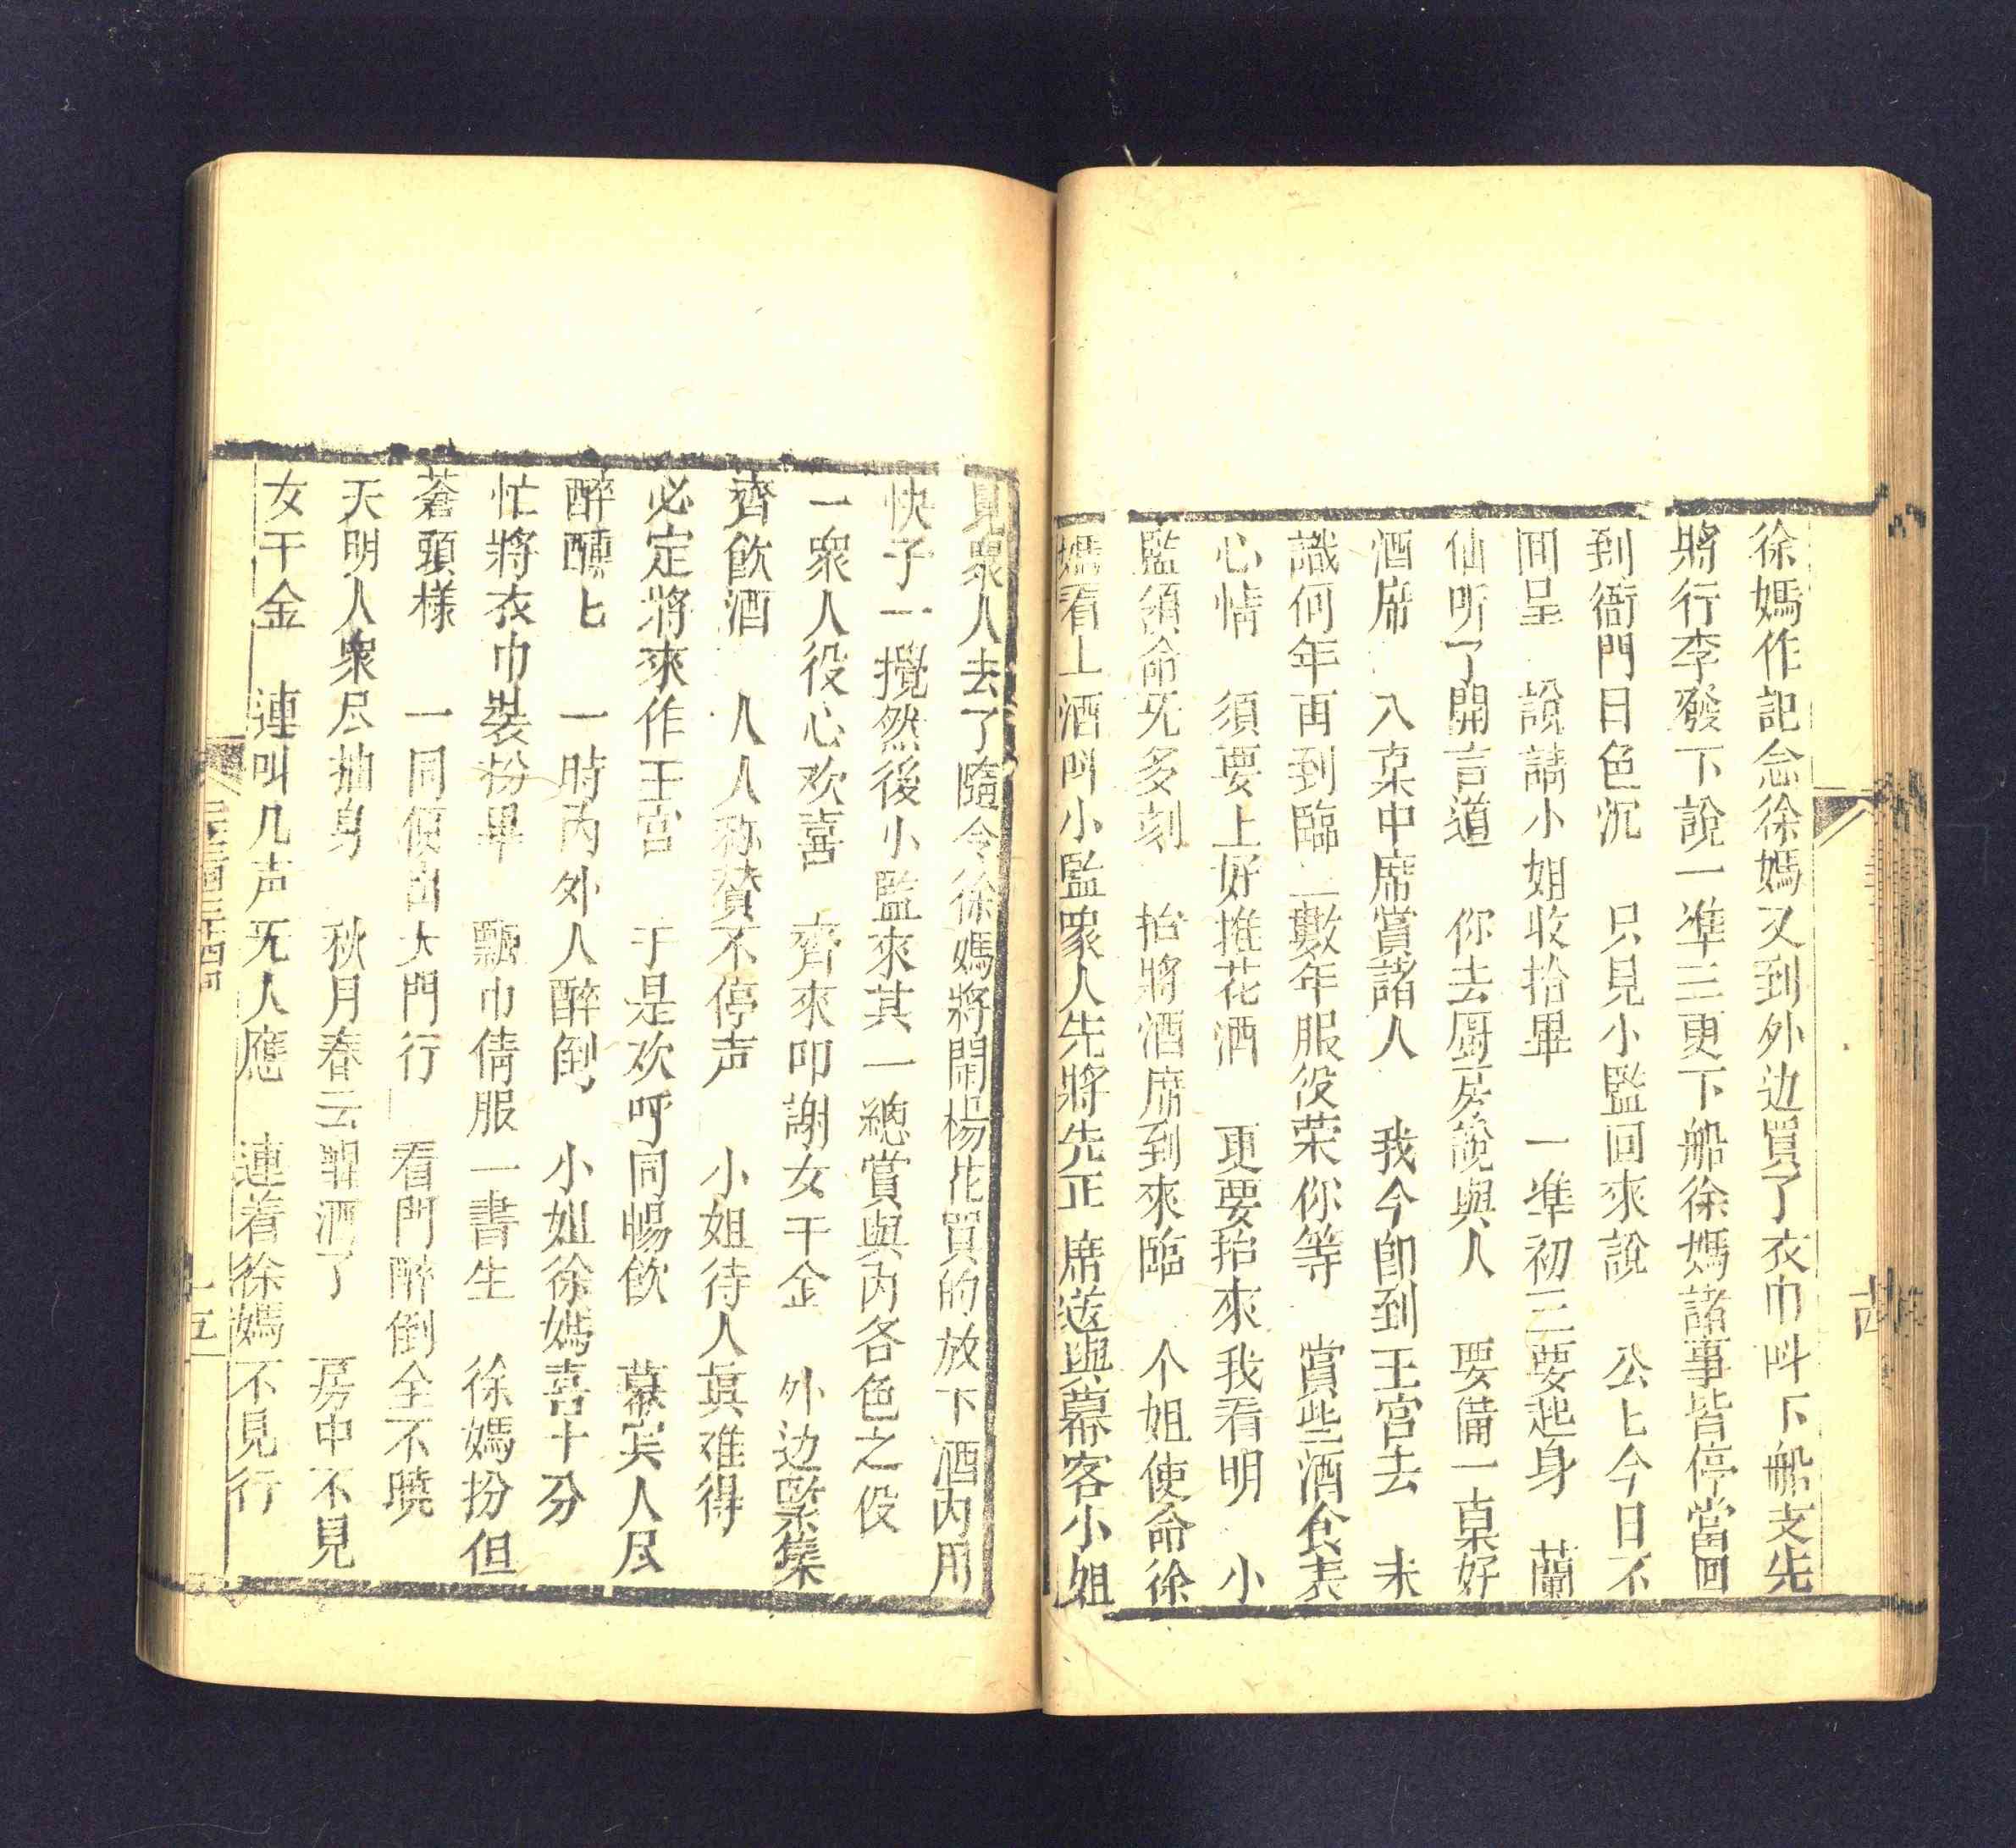 徐媽作記念徐媽又到外边買了衣巾叫下船支先
將行李發下說一準三更下船徐媽諸事皆停當回
到衙門日色沉　只見小監回來說　公匕今日不
囬呈　說請小姐收拾畢　一準初三要起身　蘭
仙听了開言道　你去厨房說與人　要備一桌好
酒席　入桌中席賞諸人　我今卽到王宫去　未
識何年再到臨　二數年服役荣你等　賞些酒食表
心情　須要上好推花酒　更要抬來我看明　小
監領命旡多刻　抬將酒席到來臨　个姐使命徐
媽看上酒叫小監衆人先將先正席送與幕客小姐
見衆人去了隨令徐媽將閙楊花買的放下酒内用
快子一攪然後小監來其一總賞與内各色之役
一衆人役心欢喜　齊來叩謝女干金　外边緊集
齊飲酒　人人称赞不停声　小姐待人眞难得
必定將來作王宫　于是欢呼同暢飲　幕宾人尽
醉醺匕　一時内外人醉倒　小姐徐媽喜十分
忙將衣巾裝扮畢　飄巾倩服一書生　徐媽扮但
蒼頭様　一同便出大門行　看門醉倒全不曉
天明人衆尽抽身　秋月春云醒酒了　房中不見
女干金　連叫几声旡人應　連着徐媽不見行
十五